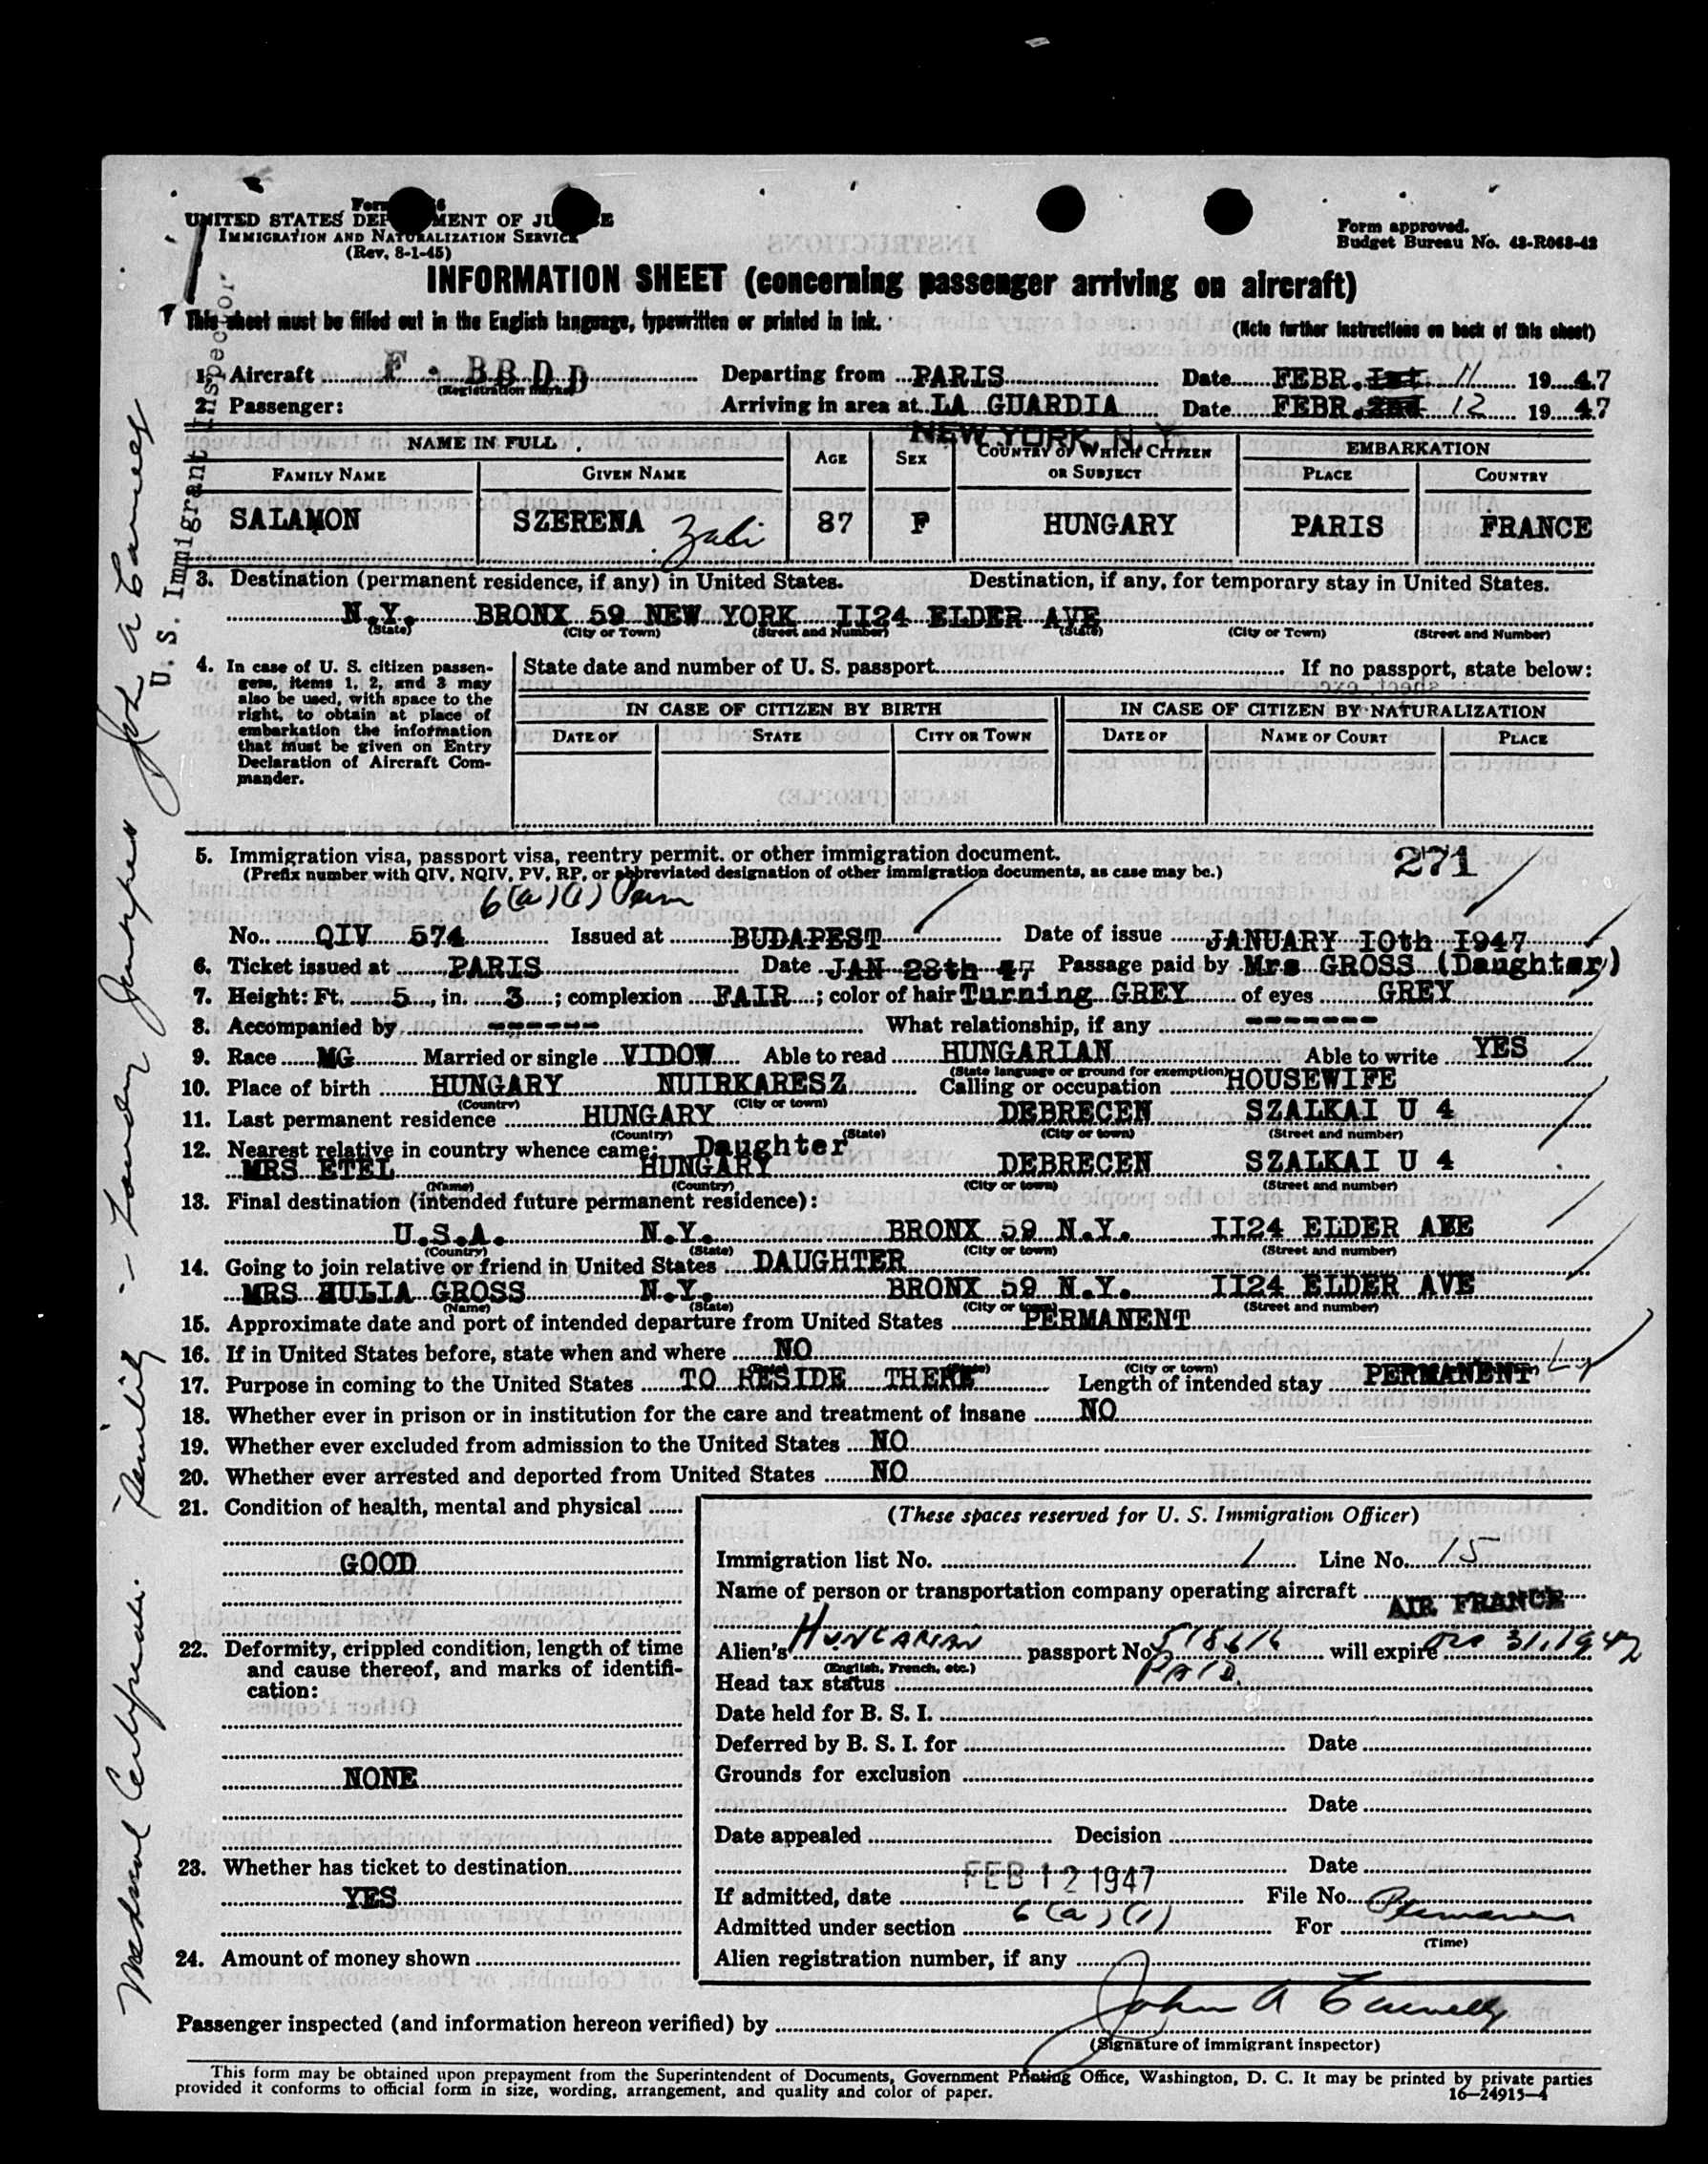 Form
UNITED STATES DEPARTMENT OF JUSTICE
IMMIGRATION AND NATURALIZATION SERVICE
(Rev. 8-1-45)
Form approved.
Budget Bureau No. 43-R063-42
INFORMATION SHEET (concerning passenger arriving on aircraft)
This sheet must be filled out in the English language, typewritten or printed in ink. (Note further instructions on back of this sheet)
1. Aircraft F. BBDD Departing from PARIS Date FEBR. 1st 11 1947
(Registration marks)
2. Passenger: Arriving in area at LA GUARDIA Date FEBR. 2nd 12 1947
NEW YORK, N. Y.
NAME IN FULL AGE SEX COUNTRY OF WHICH CITIZEN OR SUBJECT EMBARKATION
FAMILY NAME GIVEN NAME PLACE COUNTRY
SALAMON SZERENA Zali 87 F HUNGARY PARIS FRANCE
3. Destination (permanent residence, if any) in United States. Destination, if any, for temporary stay in United States.
N.Y. BRONX 59 NEW YORK II24 ELDER AVE
(State) (City or Town) (Street and Number) (State) (City or Town) (Street and Number)
4. In case of U. S. citizen passengers, items 1, 2, and 3 may also be used, with space to the right, to obtain at place of embarkation the information that must be given on Entry Declaration of Aircraft Commander.
State date and number of U. S. passport If no passport, state below:
IN CASE OF CITIZEN BY BIRTH IN CASE OF CITIZEN BY NATURALIZATION
DATE OF STATE CITY OR TOWN DATE OF NAME OF COURT PLACE
5. Immigration visa, passport visa, reentry permit, or other immigration document. 271
(Prefix number with QIV, NQIV, PV, RP, or abbreviated designation of other immigration documents, as case may be.)
6(a)(1) Perm
No. QIV 574 Issued at BUDAPEST Date of issue JANUARY I0th I947
6. Ticket issued at PARIS Date JAN 28th 47 Passage paid by Mrs GROSS (Daughter)
7. Height: Ft. 5, in. 3; complexion FAIR; color of hair Turning GREY of eyes GREY
8. Accompanied by ------- What relationship, if any -------
9. Race MG Married or single VIDOW Able to read HUNGARIAN Able to write YES
(State language or ground for exemption)
10. Place of birth HUNGARY NUIRKARESZ Calling or occupation HOUSEWIFE
(Country) (City or town)
11. Last permanent residence HUNGARY DEBRECEN SZALKAI U 4
(Country) (State) (City or town) (Street and number)
12. Nearest relative in country whence came: Daughter
MRS ETEL HUNGARY DEBRECEN SZALKAI U 4
(Name) (Country) (City or town) (Street and number)
13. Final destination (intended future permanent residence):
U.S.A. N.Y. BRONX 59 N.Y. II24 ELDER AEE
(Country) (State) (City or town) (Street and number)
14. Going to join relative or friend in United States DAUGHTER
MRS HULIA GROSS N.Y. BRONX 59 N.Y. II24 ELDER AVE
(Name) (State) (City or town) (Street and number)
15. Approximate date and port of intended departure from United States PERMANENT
16. If in United States before, state when and where NO
(Date) (State) (City or town)
17. Purpose in coming to the United States TO RESIDE THERE Length of intended stay PERMANENT
18. Whether ever in prison or in institution for the care and treatment of insane NO
19. Whether ever excluded from admission to the United States NO
20. Whether ever arrested and deported from United States NO
21. Condition of health, mental and physical
GOOD
22. Deformity, crippled condition, length of time and cause thereof, and marks of identification:
NONE
23. Whether has ticket to destination
YES
24. Amount of money shown
(These spaces reserved for U. S. Immigration Officer)
Immigration list No. 1 Line No. 15
Name of person or transportation company operating aircraft
AIR FRANCE
Alien's HUNGARIAN passport No. 518616 will expire Dec 31, 1947
(English, French, etc.)
Head tax status PAID.
Date held for B. S. I.
Deferred by B. S. I. for Date
Grounds for exclusion
Date
Date appealed Decision
Date
If admitted, date FEB 12 1947 File No.
Admitted under section 6(a)(1) For Permanent
(Time)
Alien registration number, if any
Passenger inspected (and information hereon verified) by John A
(Signature of immigrant inspector)
This form may be obtained upon prepayment from the Superintendent of Documents, Government Printing Office, Washington, D. C. It may be printed by private parties
provided it conforms to official form in size, wording, arrangement, and quality and color of paper. 16—24915-4
Medical Certificate: Senility
John A
U. S. Immigrant Inspector